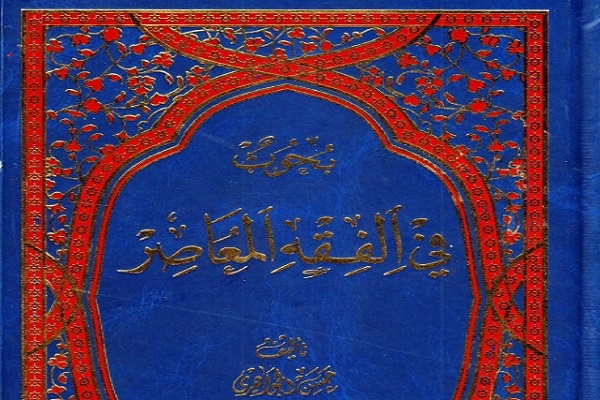 بُحُوثٌ
فِي الفِقْهِ المُعَاصِرِ
تأليف
حسن الجواهري